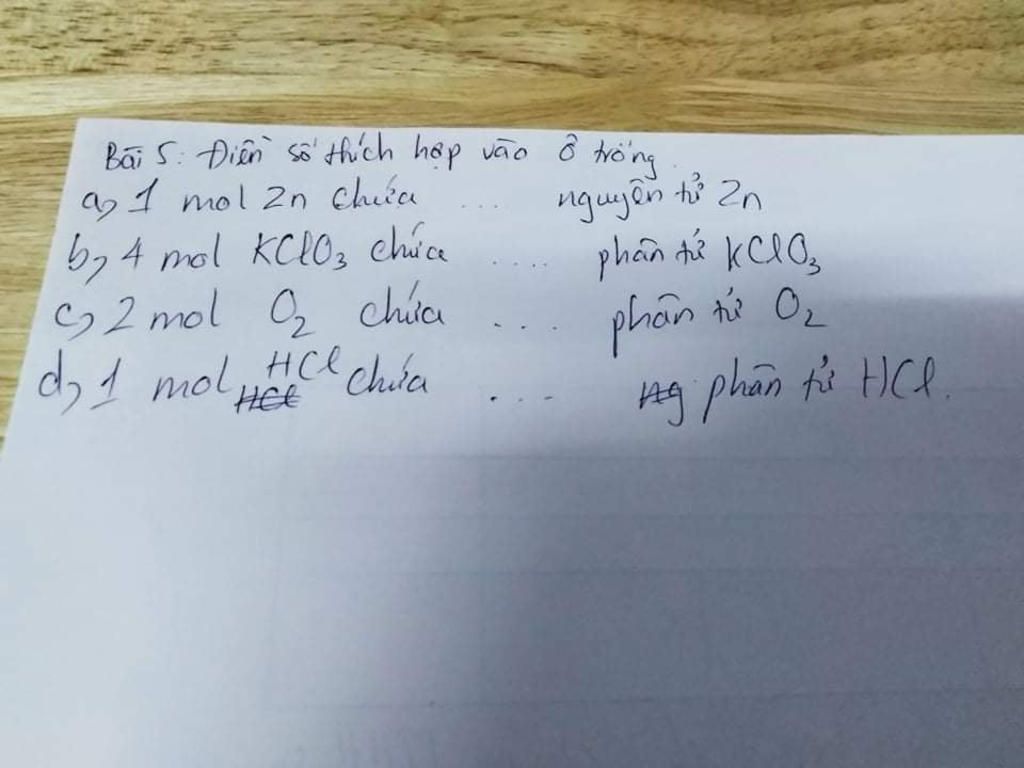 Bài 5: Điền số thích hợp vào ô trống.
a, 1 mol Zn chứa ... nguyên tử Zn
b, 4 mol KClO₃ chứa .... phân tử KClO₃
c, 2 mol O₂ chứa ... phân tử O₂
d, 1 mol HCl chứa ... phân tử HCl.